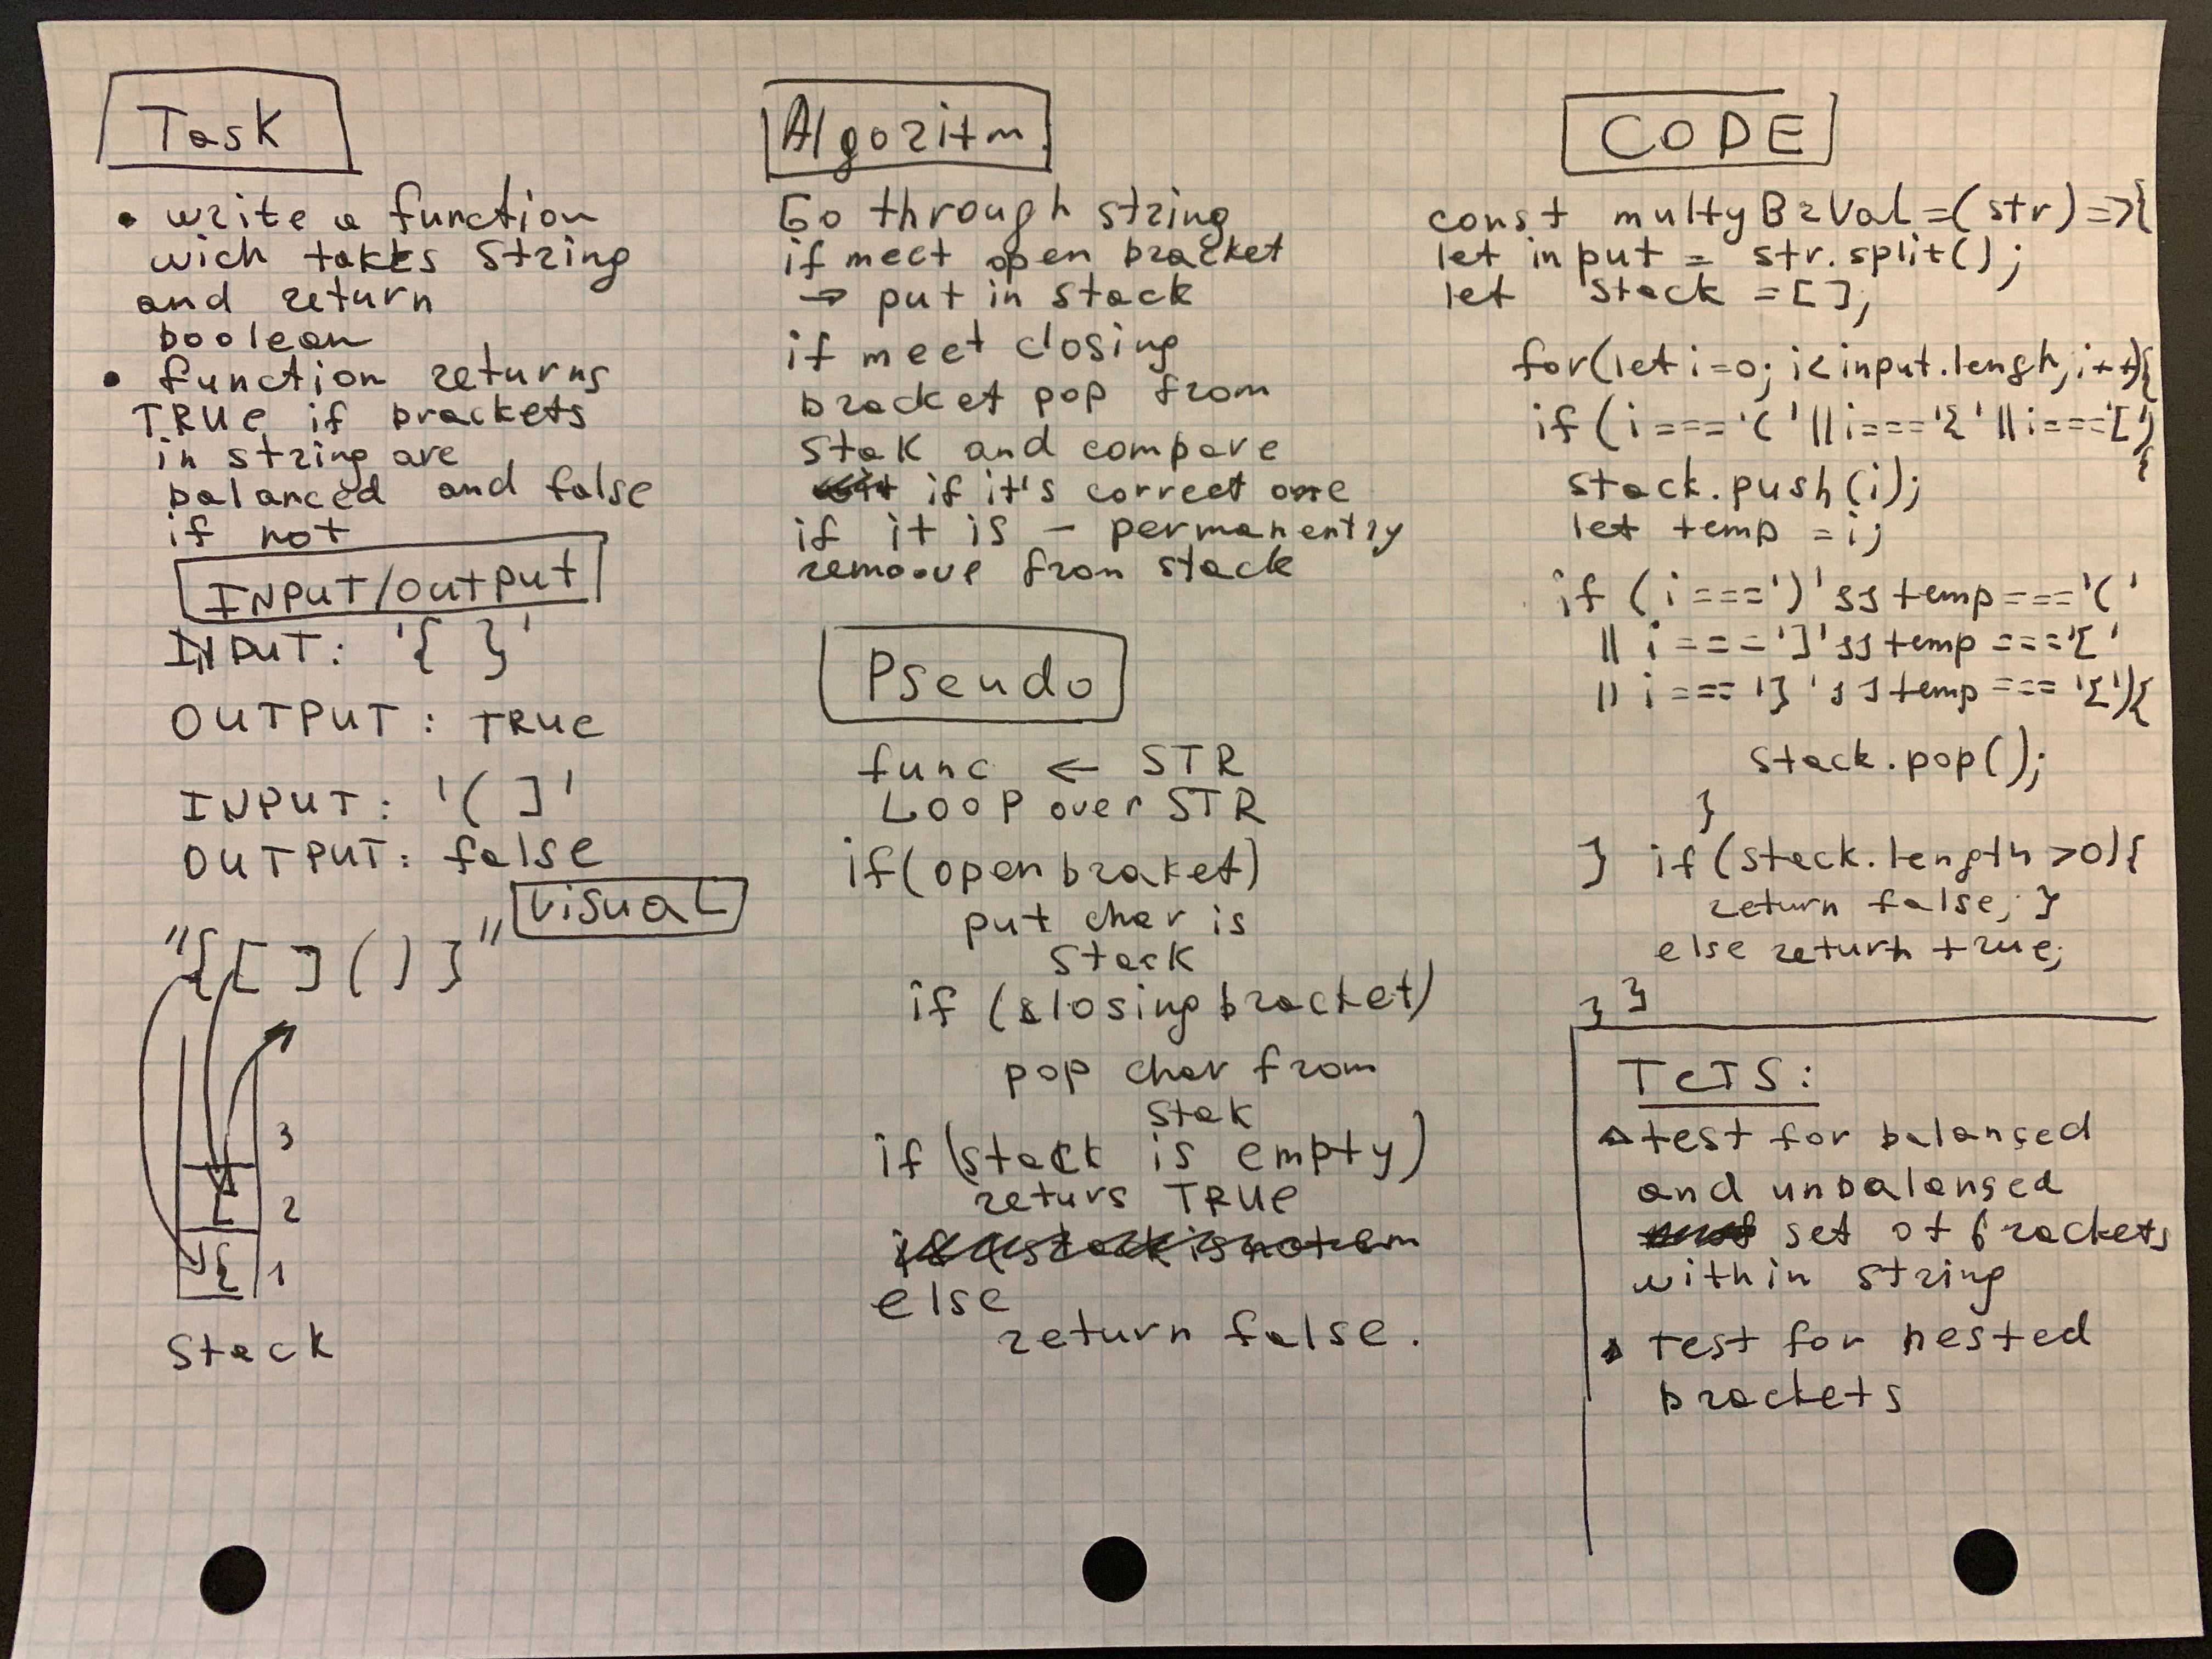 Task
• write a function
wich takes string
and return
boolean
• function returns
TRUE if brackets
in string are
balanced and false
if not
INPUT/OUTPUT
INPUT: '{ }'
OUTPUT: TRUE
INPUT: '( ]'
OUTPUT: false
Visual
"{[ ] ( ) }"
3
[ 2
{ 1
Stack
Algoritm.
Go through string
if meet open bracket
→ put in stack
if meet closing
bracket pop from
stak and compare
if it's correct one
if it is - permanentry
remoove from stack
Pseudo
func ← STR
LOOP over STR
if(open braket)
put char is
stack
if (slosing bracket)
pop char from
stak
if (stack is empty)
returs TRUE
if (stack is not em
else
return false.
CODE
const multyBrVal=(str)=>{
let input = str.split();
let stack =[];
for(let i=0; i<input.lengh; i++){
if (i==='('||i==='{'||i==='['){
stack.push(i);
let temp = i;
if (i===')'&&temp==='('
|| i===']'&&temp==='['
|| i==='}'&&temp==='{'){
stack.pop();
}
} if(stack.length>0){
return false; }
else return true;
} }
TeTS:
test for balanced
and unbalansed
set of brackets
within string
Test for nested
brackets